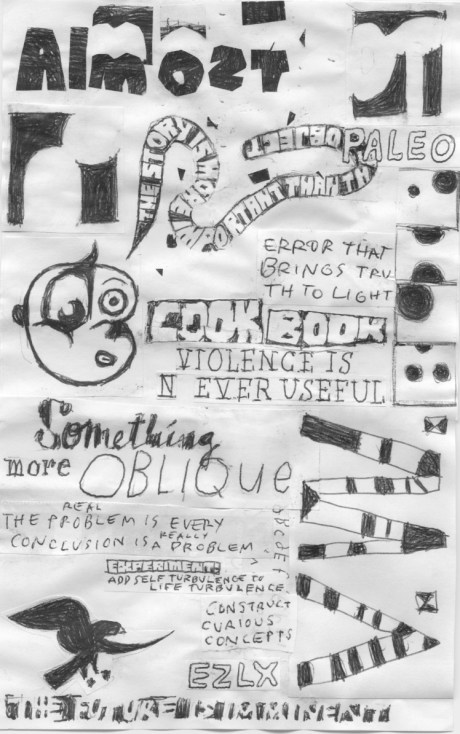 Almost
THE STORY IS MORE IMPORTANT THAN TH OBJECT
PALEO
ERROR THAT
BRINGS TRU
TH TO LIGHT
COOK BOOK
VIOLENCE IS
N EVER USEFUL
Something
more OBLIQUE
REAL
THE PROBLEM IS EVERY
REALLY
CONCLUSION IS A PROBLEM
ABCDEF
EXPERIMENT:
ADD SELF TURBULENCE TO
LIFE TURBULENCE
CONSTRUCT
CURIOUS
CONCEPTS
EZLX
THE FUTURE